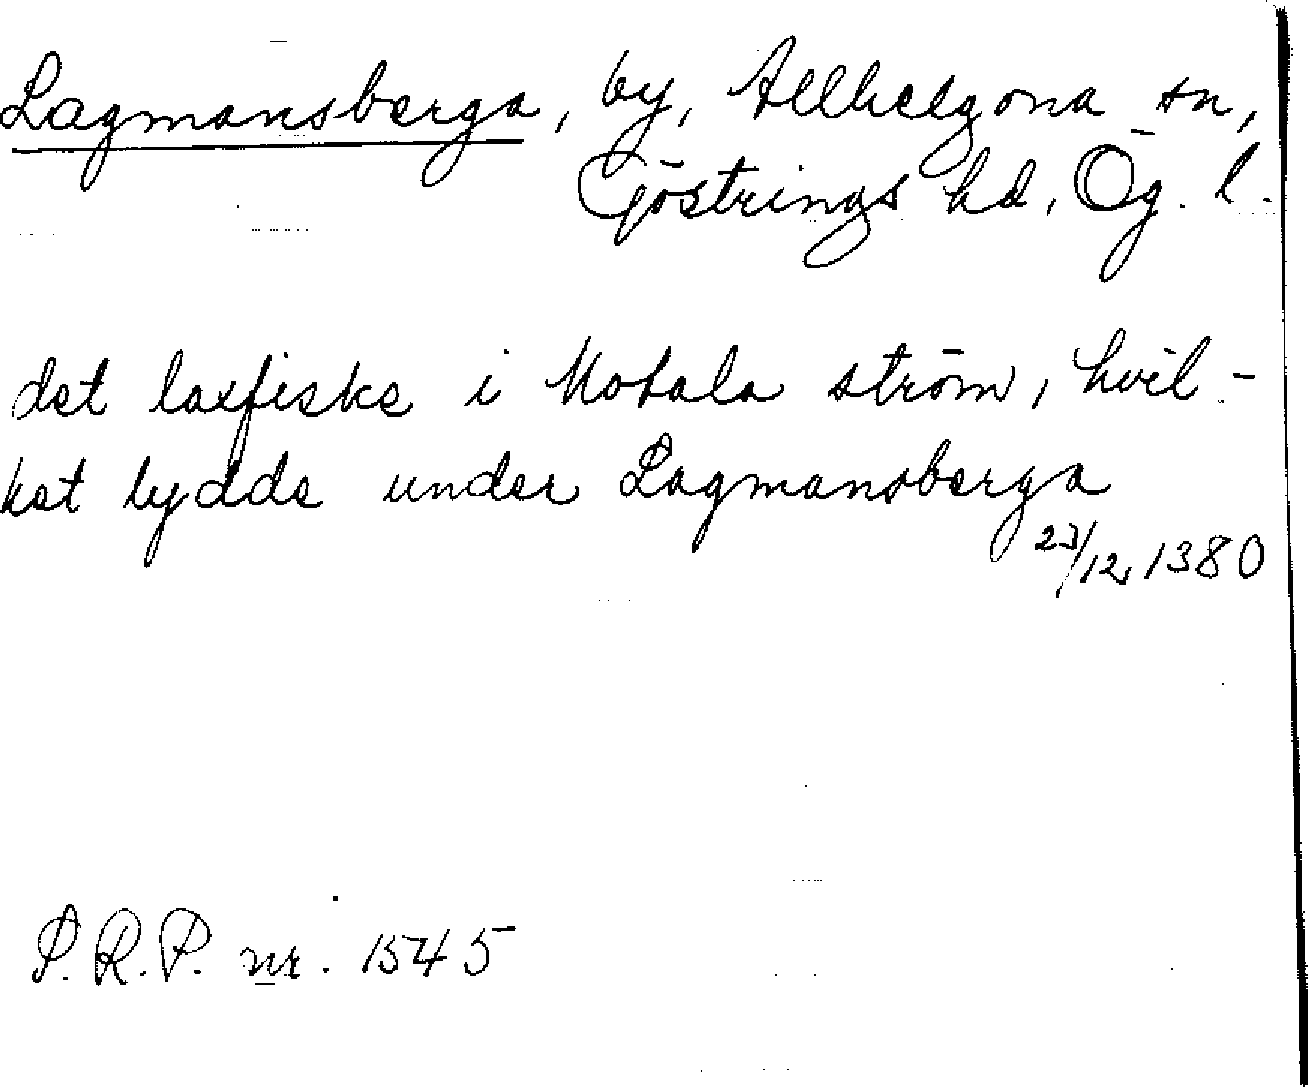 Lagmansberga, by, Allhelgona sn,
Göstrings hd, Ög. l.
det laxfiske i Motala ström, hvil-
ket lydde under Lagmansberga
23/12 1380
P.R.P. nr. 1545